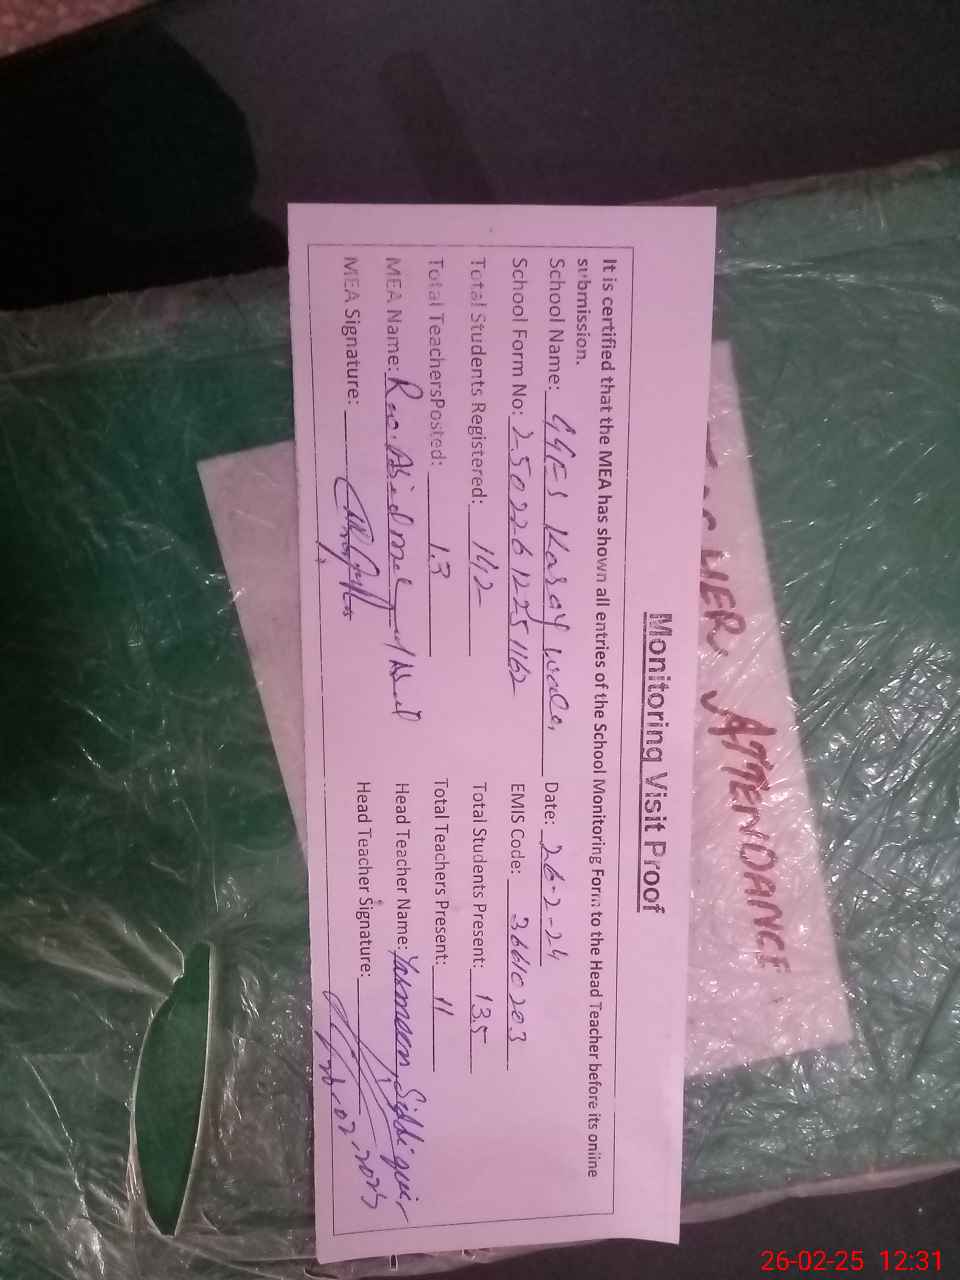 Monitoring Visit Proof
It is certified that the MEA has shown all entries of the School Monitoring Form to the Head Teacher before its online
submission.
School Name: GGES Kasoywala, Date: 26-2-24
School Form No: 25022612251162 EMIS Code: 36610203
Total Students Registered: 142 Total Students Present: 135
Total TeachersPosted: 13 Total Teachers Present: 11
MEA Name: Rao Abid Head Teacher Name: Yasmeen Siddiqui
MEA Signature: Head Teacher Signature:
26-02-2025
ATTENDANCE
26-02-25 12:31